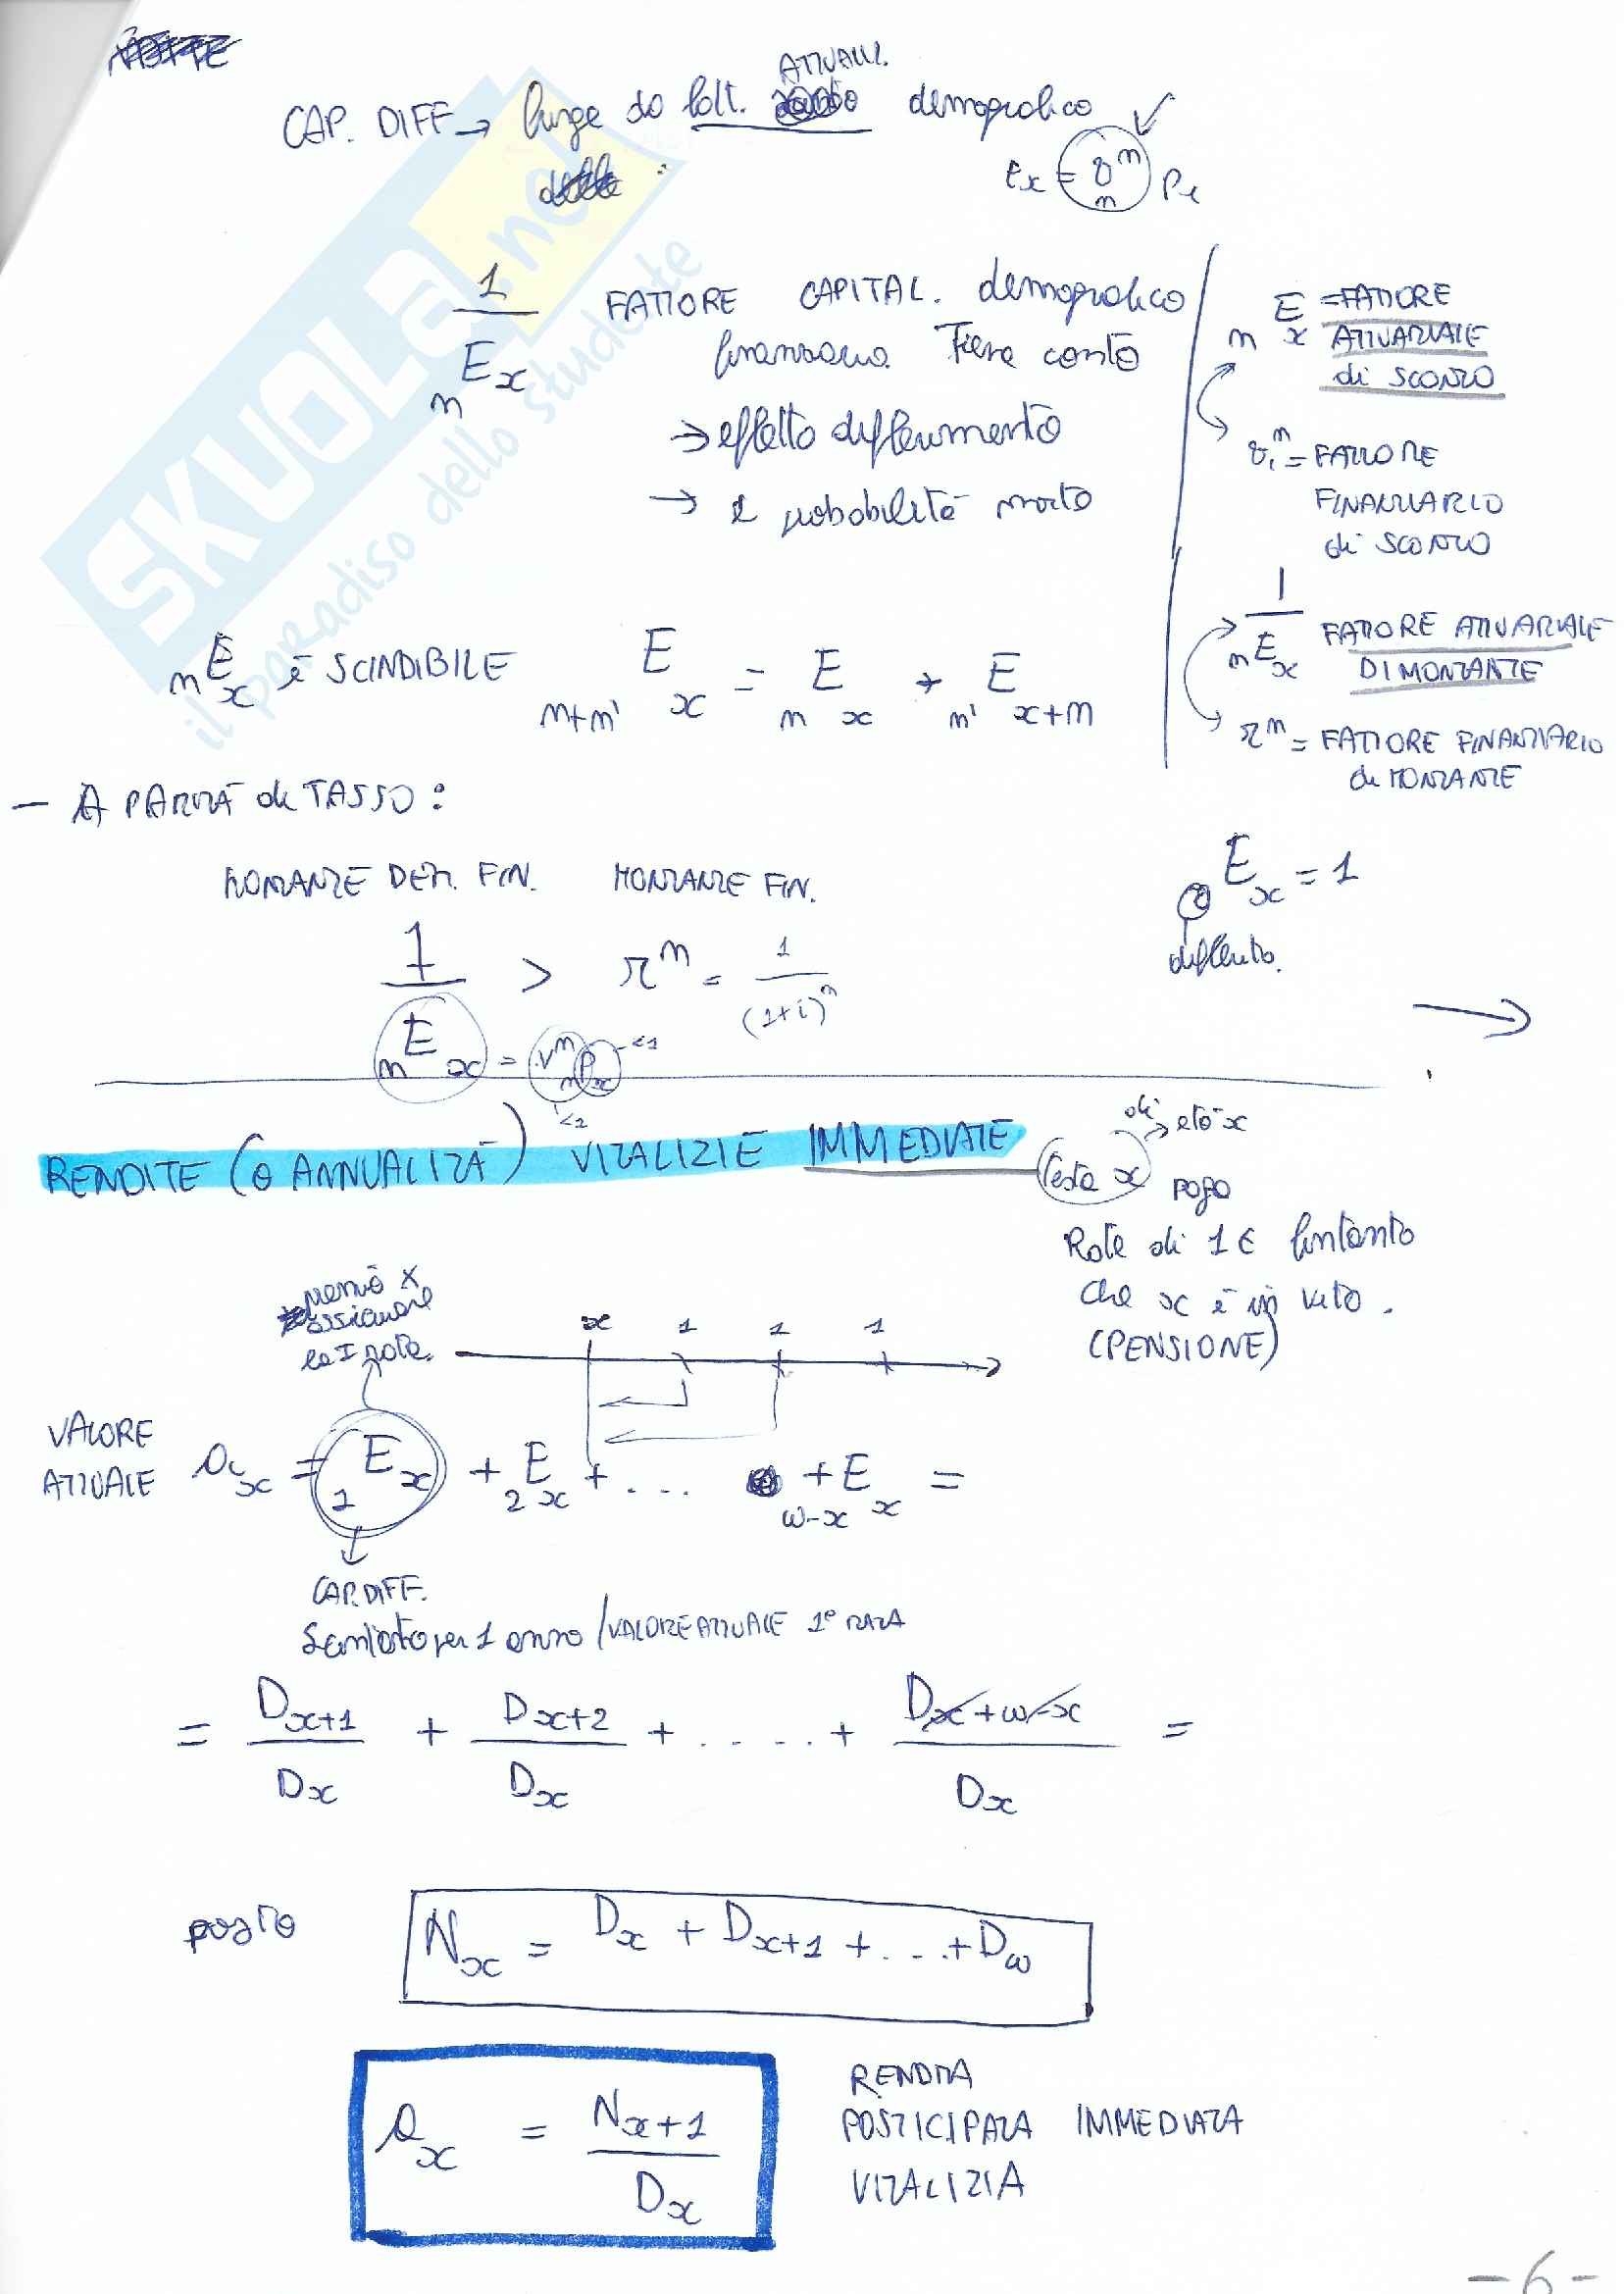 CAP. DIFF → funge da fatt. ATTUALIZ. demografico
Ex = v^n n Px
1 / nEx FATTORE CAPITAL. demografico
finanziario. Tiene conto
→ effetto differimento
→ e probabilità morte
nEx = FATTORE
ATTUARIALE
di SCONTO
v^n = FATTORE
FINANZIARIO
di SCONTO
1 / nEx FATTORE ATTUARIALE
DI MONTANTE
r^n = FATTORE FINANZIARIO
di MONTANTE
nEx è SCINDIBILE m+m' Ex = m Ex * m' Ex+m
- A PARITÀ di TASSO:
MONTANTE DEM. FIN. MONTANTE FIN.
1 / nEx > r^n = 1 / (1+i)^n
nEx = v^n nPx <1
0Ex = 1
RENDITE (o ANNUALITÀ) VITALIZIE IMMEDIATE
testa x → di età x
pago
Rate di 1€ fintanto
che x è in vita.
(PENSIONE)
premio x
assicurare
la I rata.
x 1 1 1
VALORE
ATTUALE ax = 1Ex + 2Ex + ... + ω-xEx =
CAP. DIFF.
scontato per 1 anno / VALORE ATTUALE 1ª RATA
= Dx+1 / Dx + Dx+2 / Dx + ..... + Dx+ω-x / Dx =
posto Nx = Dx + Dx+1 + ... + Dω
ax = Nx+1 / Dx
RENDITA
POSTICIPATA IMMEDIATA
VITALIZIA
-6-
SKUOLA.net
il paradiso dello studente